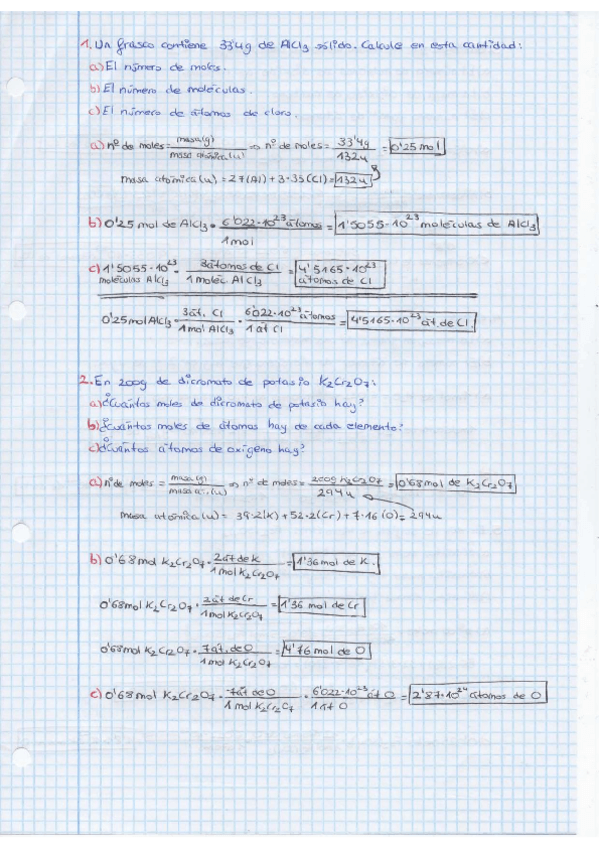 1. Un frasco contiene 33'4g de AlCl3 sólido. Calcule en esta cantidad:
a) El número de moles.
b) El número de moléculas.
c) El número de átomos de cloro.
a) nº de moles = masa(g) / masa atómica(u) => nº de moles = 33'4g / 132u = 0'25 mol
masa atómica (u) = 27(Al) + 3·35(Cl) = 132u
b) 0'25 mol de AlCl3 · 6'022·10^23 átomos / 1mol = 1'5055·10^23 moléculas de AlCl3
c) 1'5055·10^23 moléculas AlCl3 · 3átomos de Cl / 1 moléc AlCl3 = 4'5165·10^23 átomos de Cl
0'25mol AlCl3 · 3át. Cl / 1 mol AlCl3 · 6'022·10^23 átomos / 1 át Cl = 4'5165·10^23 át. de Cl.
2. En 200g de dicromato de potasio K2Cr2O7:
a) ¿Cuántos moles de dicromato de potasio hay?
b) ¿Cuántos moles de átomos hay de cada elemento?
c) ¿Cuántos átomos de oxígeno hay?
a) nº de moles = masa(g) / masa at.(u) => nº de moles = 200g K2Cr2O7 / 294u = 0'68 mol de K2Cr2O7
masa atómica(u) = 39·2(K) + 52·2(Cr) + 7·16(O) = 294u
b) 0'68mol K2Cr2O7 · 2át de K / 1 mol K2Cr2O7 = 1'36 mol de K.
0'68mol K2Cr2O7 · 2át de Cr / 1 mol K2Cr2O7 = 1'36 mol de Cr
0'68mol K2Cr2O7 · 7át. de O / 1 mol K2Cr2O7 = 4'76 mol de O
c) 0'68mol K2Cr2O7 · 7át de O / 1 mol K2Cr2O7 · 6'022·10^23 át O / 1 át O = 2'87·10^24 átomos de O